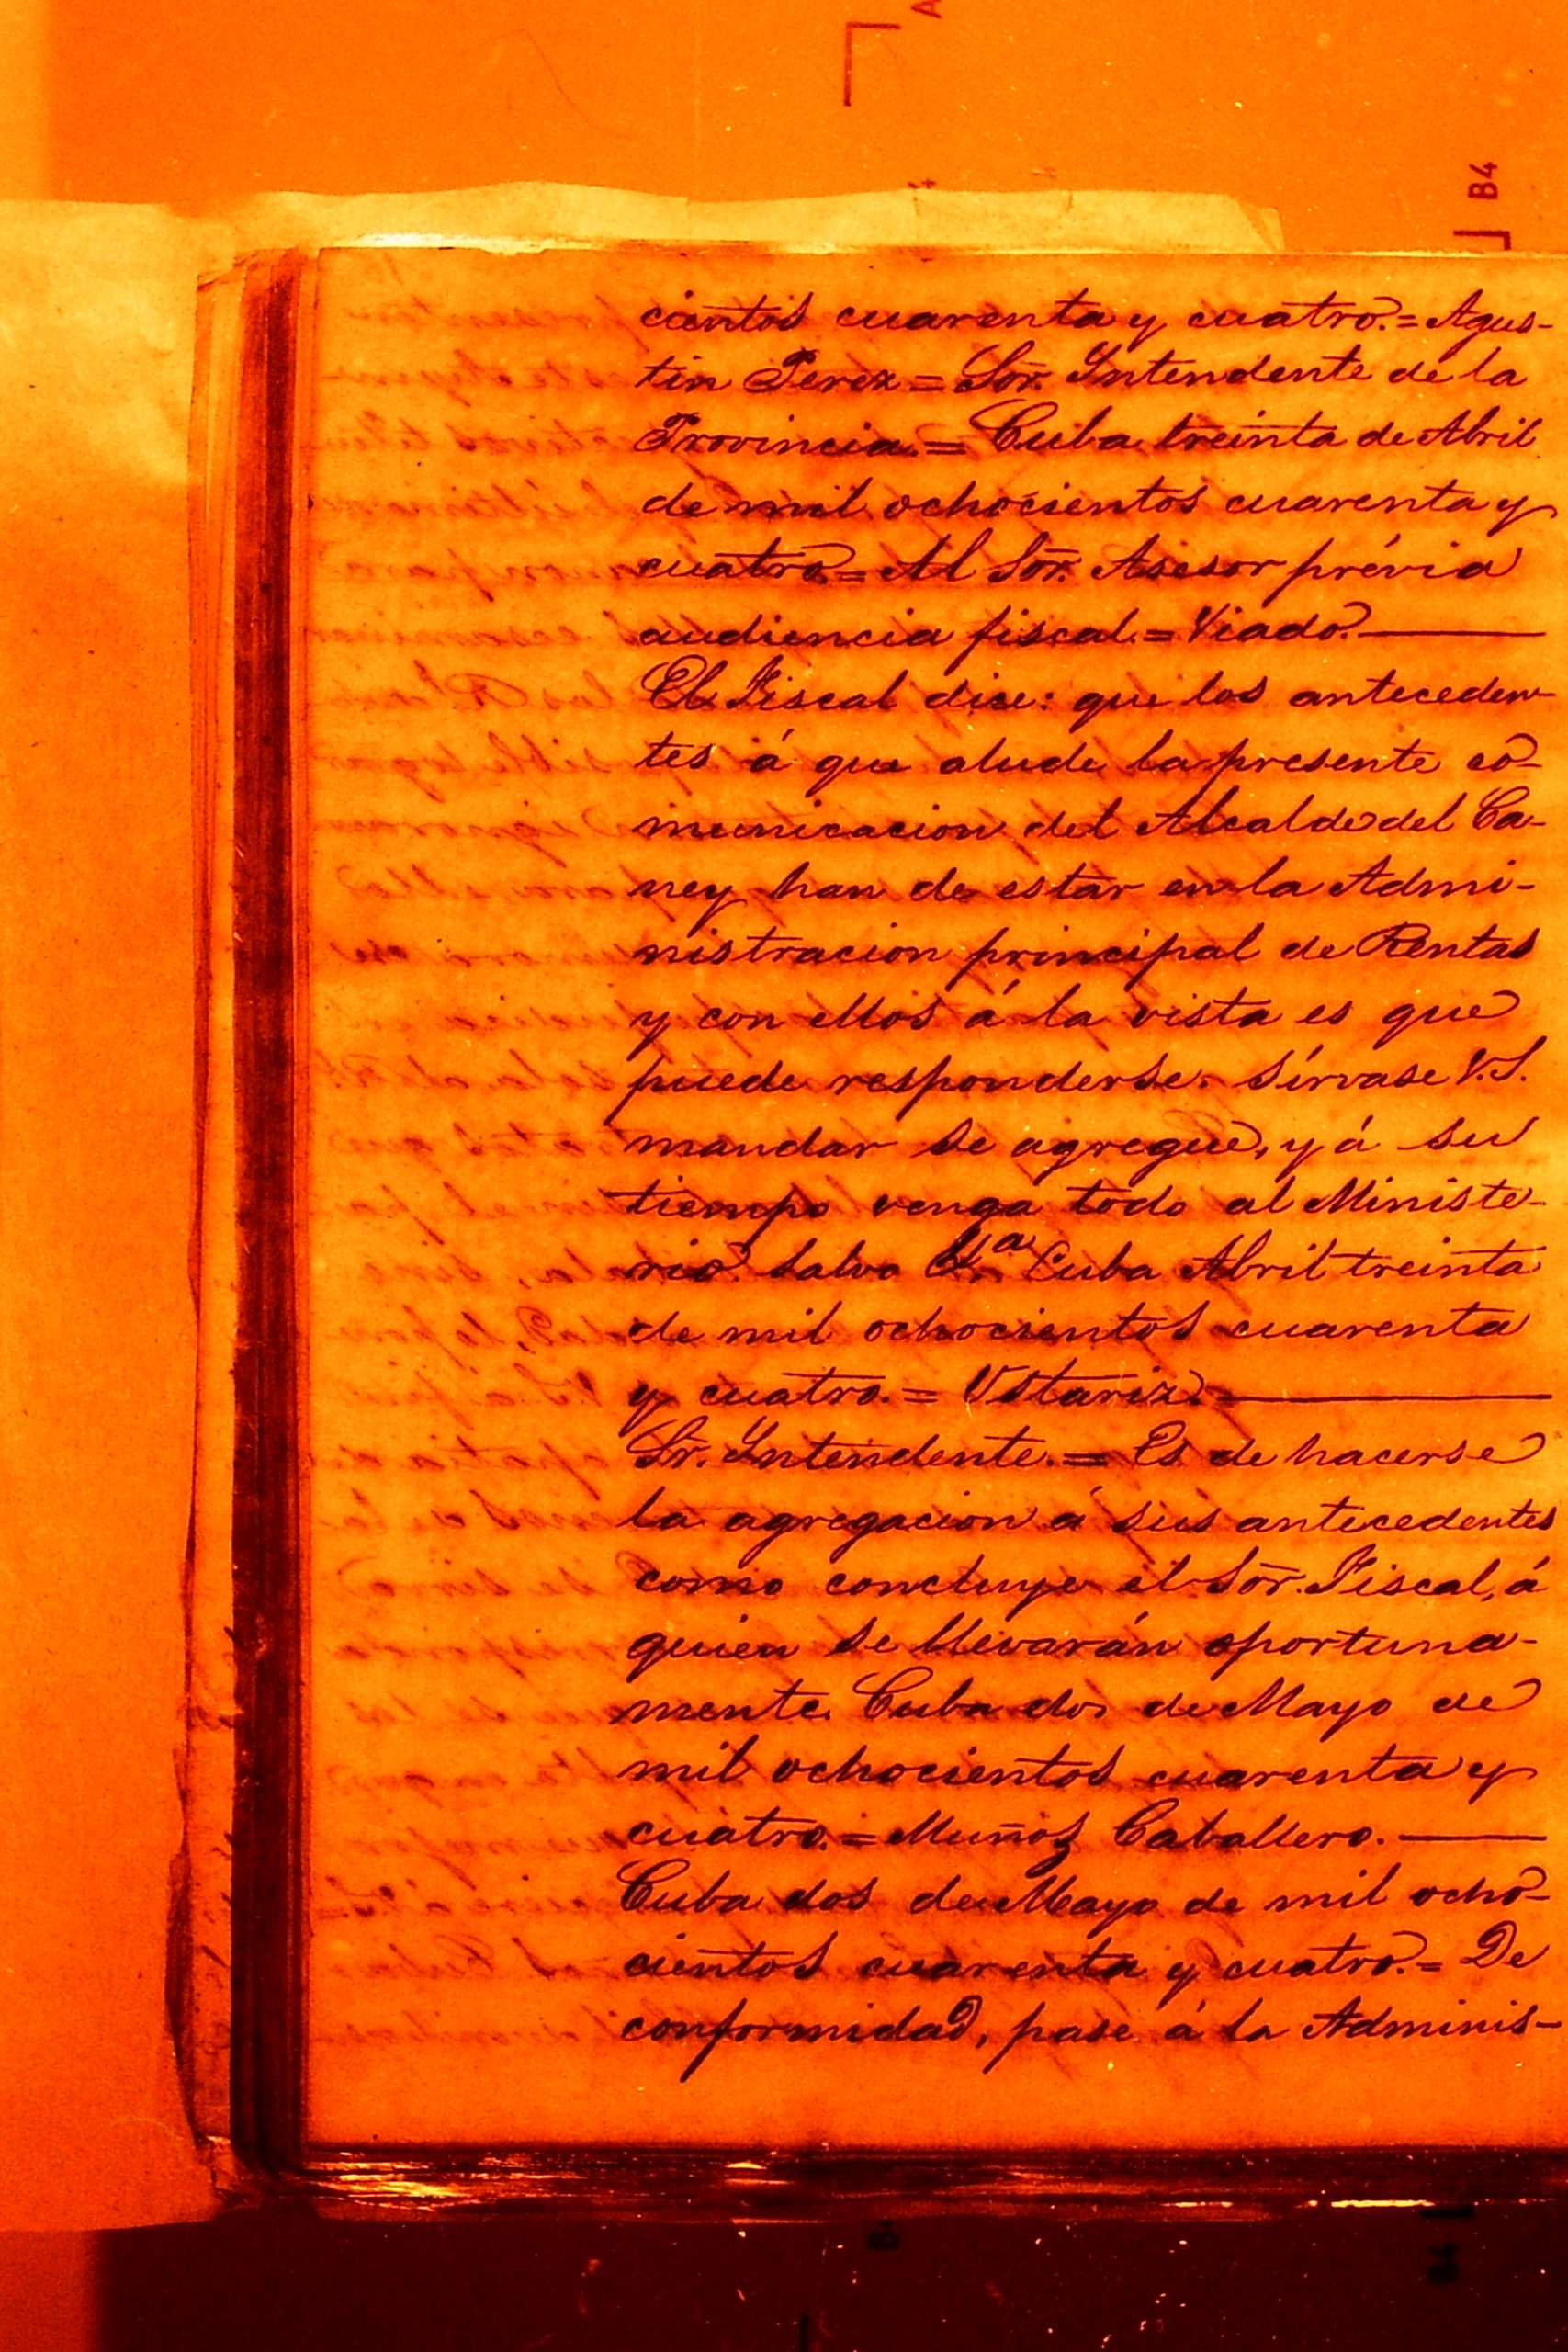 A
B4
cientos cuarenta y cuatro.= Agus-
tin Perez = Sor. Intendente de la
Provincia.= Cuba treinta de Abril
de mil ochocientos cuarenta y
cuatro.= Al Sor. Asesor prévia
audiencia fiscal.= Viado.—
El Fiscal dice: que los anteceden-
tes á que alude la presente co-
municacion del Alcalde del Ca-
ney han de estar en la Admi-
nistracion principal de Rentas
y con ellos á la vista es que
puede responderse. Sírvase V.S.
mandar se agregue, y á su
tiempo venga todo al Ministe-
rio salvo Cuba Abril treinta
de mil ochocientos cuarenta
y cuatro.= Ustariz.—
Sr. Intendente.= Es de hacerse
la agregacion á sus antecedentes
como concluye el Sor. Fiscal, á
quien se llevarán oportuna-
mente. Cuba dos de Mayo de
mil ochocientos cuarenta y
cuatro.= Muñoz Caballero.—
Cuba dos de Mayo de mil ocho-
cientos cuarenta y cuatro.= De
conformidad, pase á la Adminis-